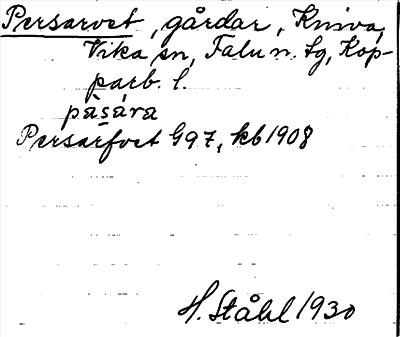 Persarvet, gårdar, Kniva,
Vika sn, Falu n. tg, Kop-
parb. l.
pàsára
Persarfvet G97, kb 1908
H. Ståhl 1930